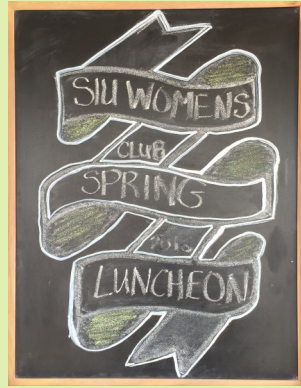 SIU WOMENS
CLUB
SPRING
LUNCHEON